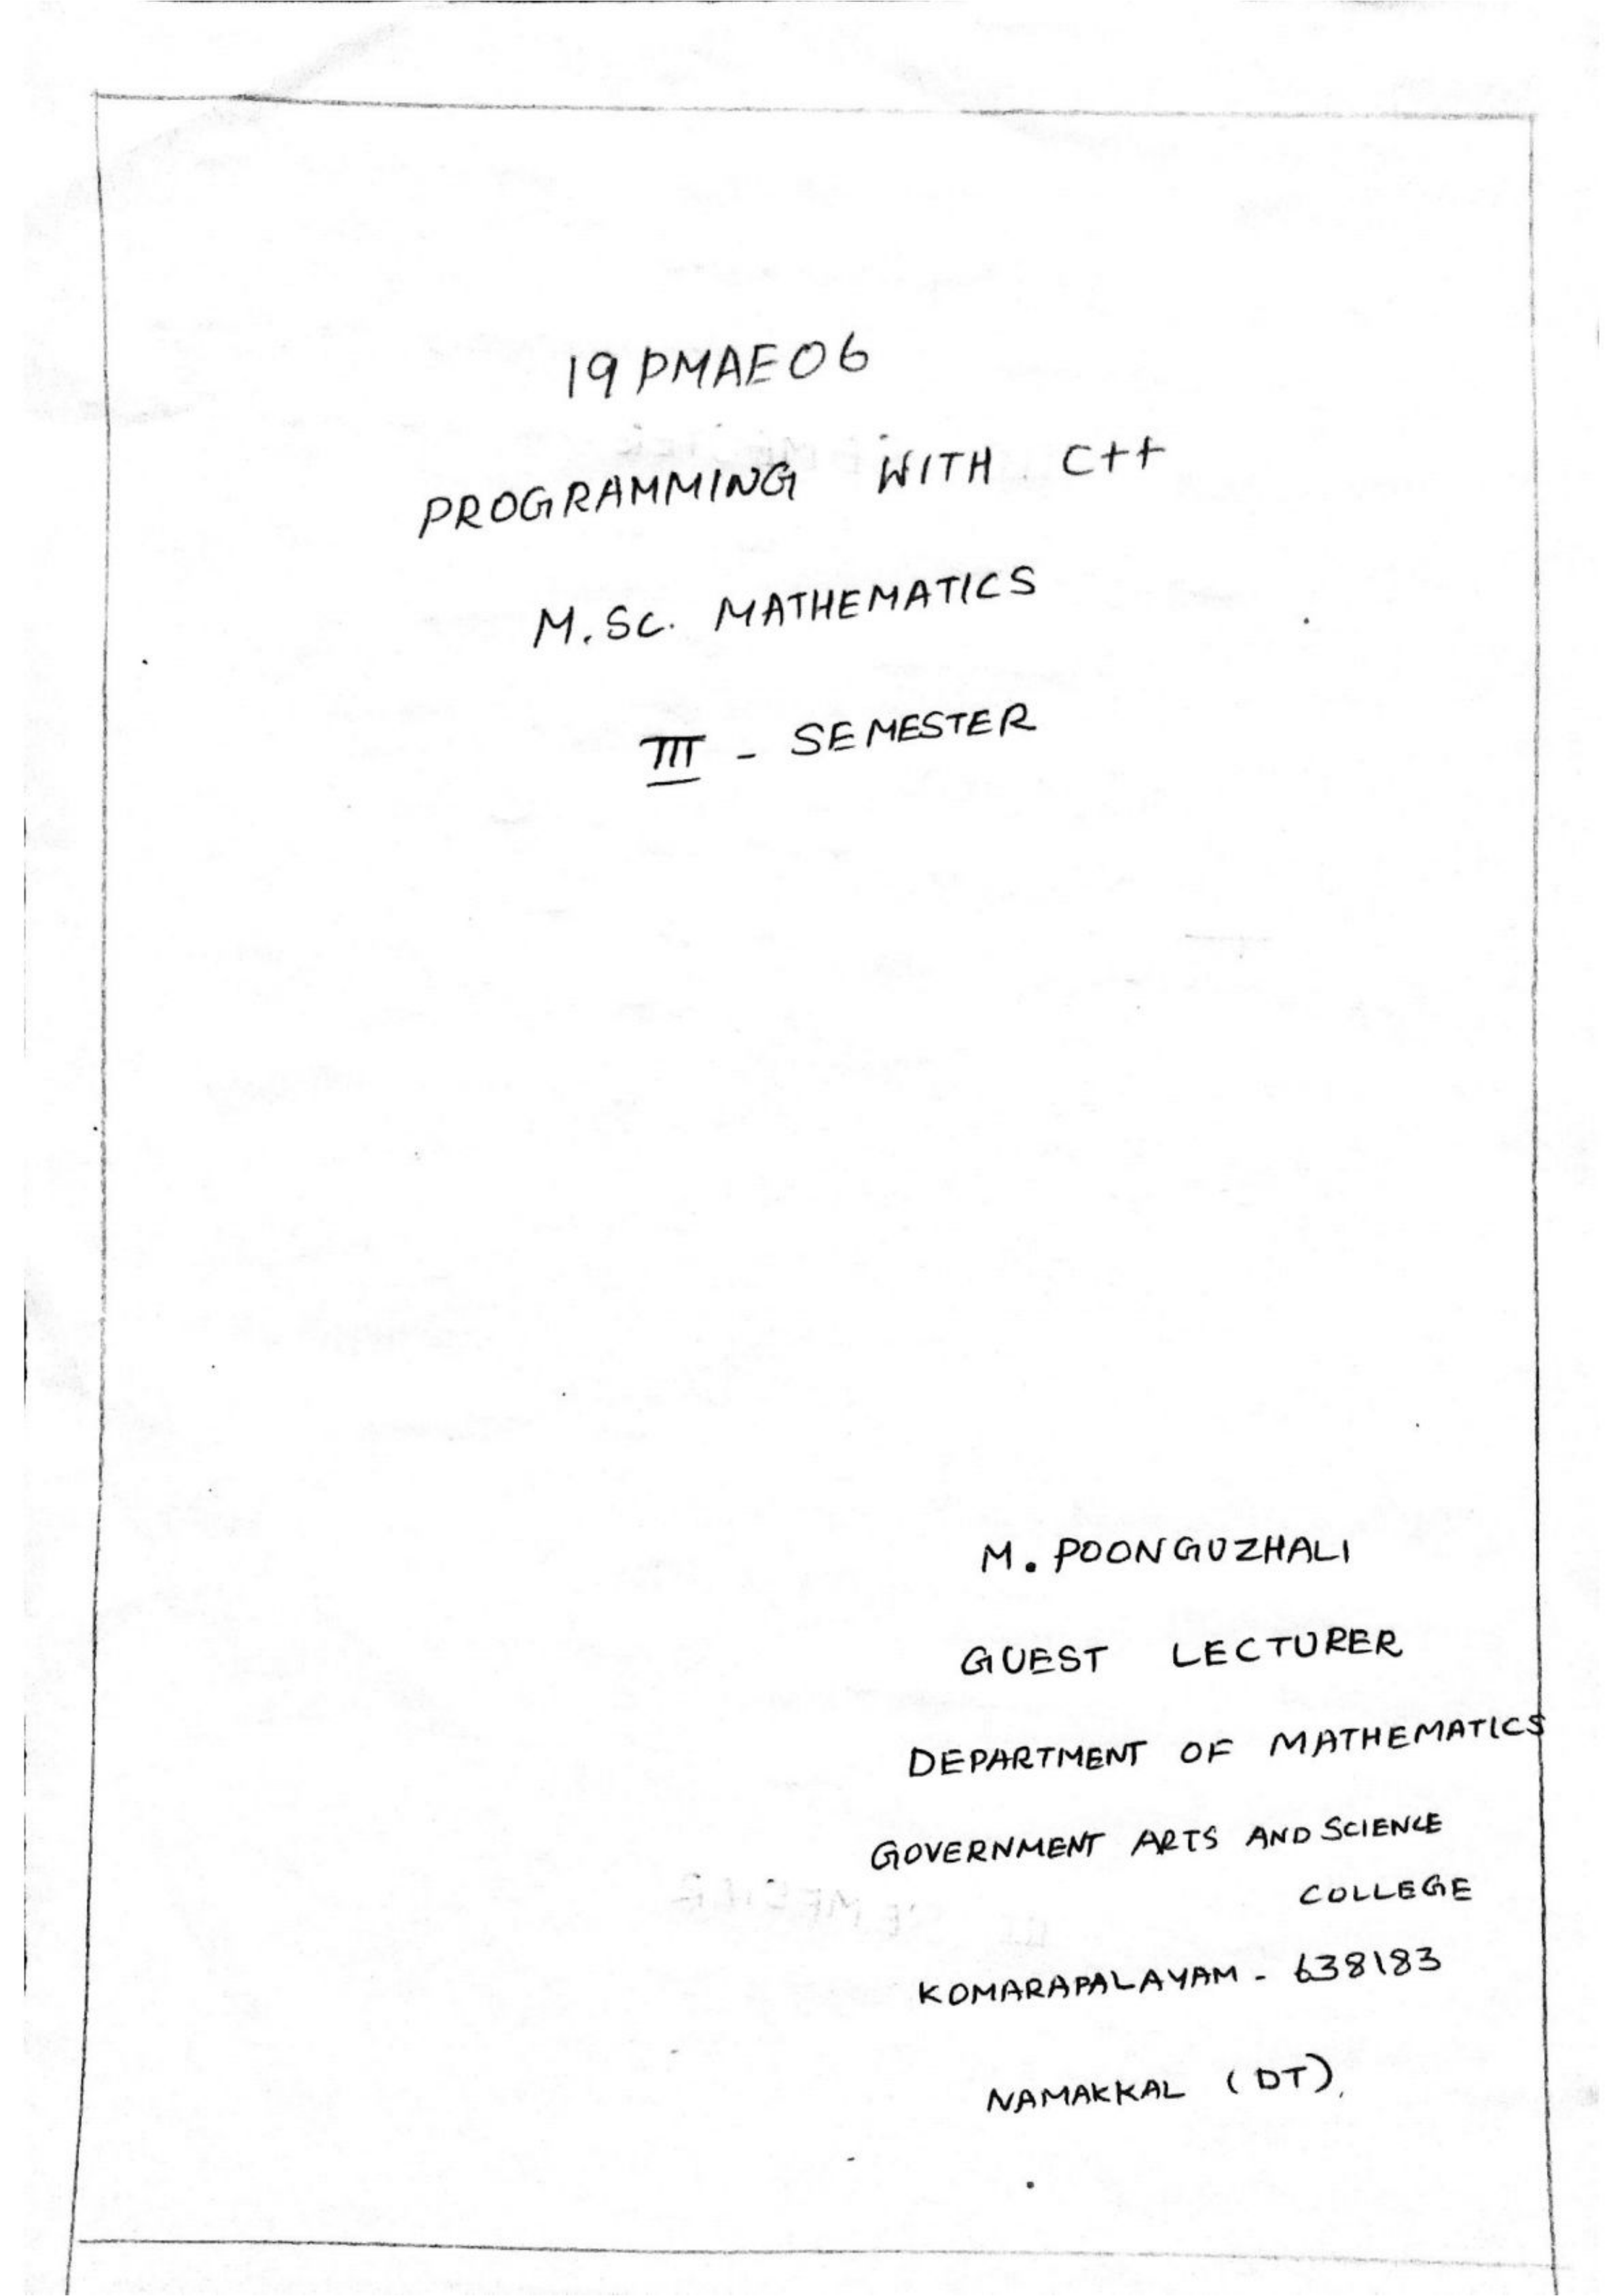 19PMAE06
PROGRAMMING WITH C++
M.SC. MATHEMATICS
III - SEMESTER
M. POONGUZHALI
GUEST LECTURER
DEPARTMENT OF MATHEMATICS
GOVERNMENT ARTS AND SCIENCE
COLLEGE
KOMARAPALAYAM - 638183
NAMAKKAL (DT),